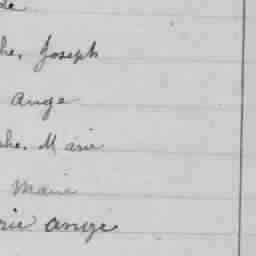 de
he, Joseph
Ange
che. Marie
Marie
rie Ange